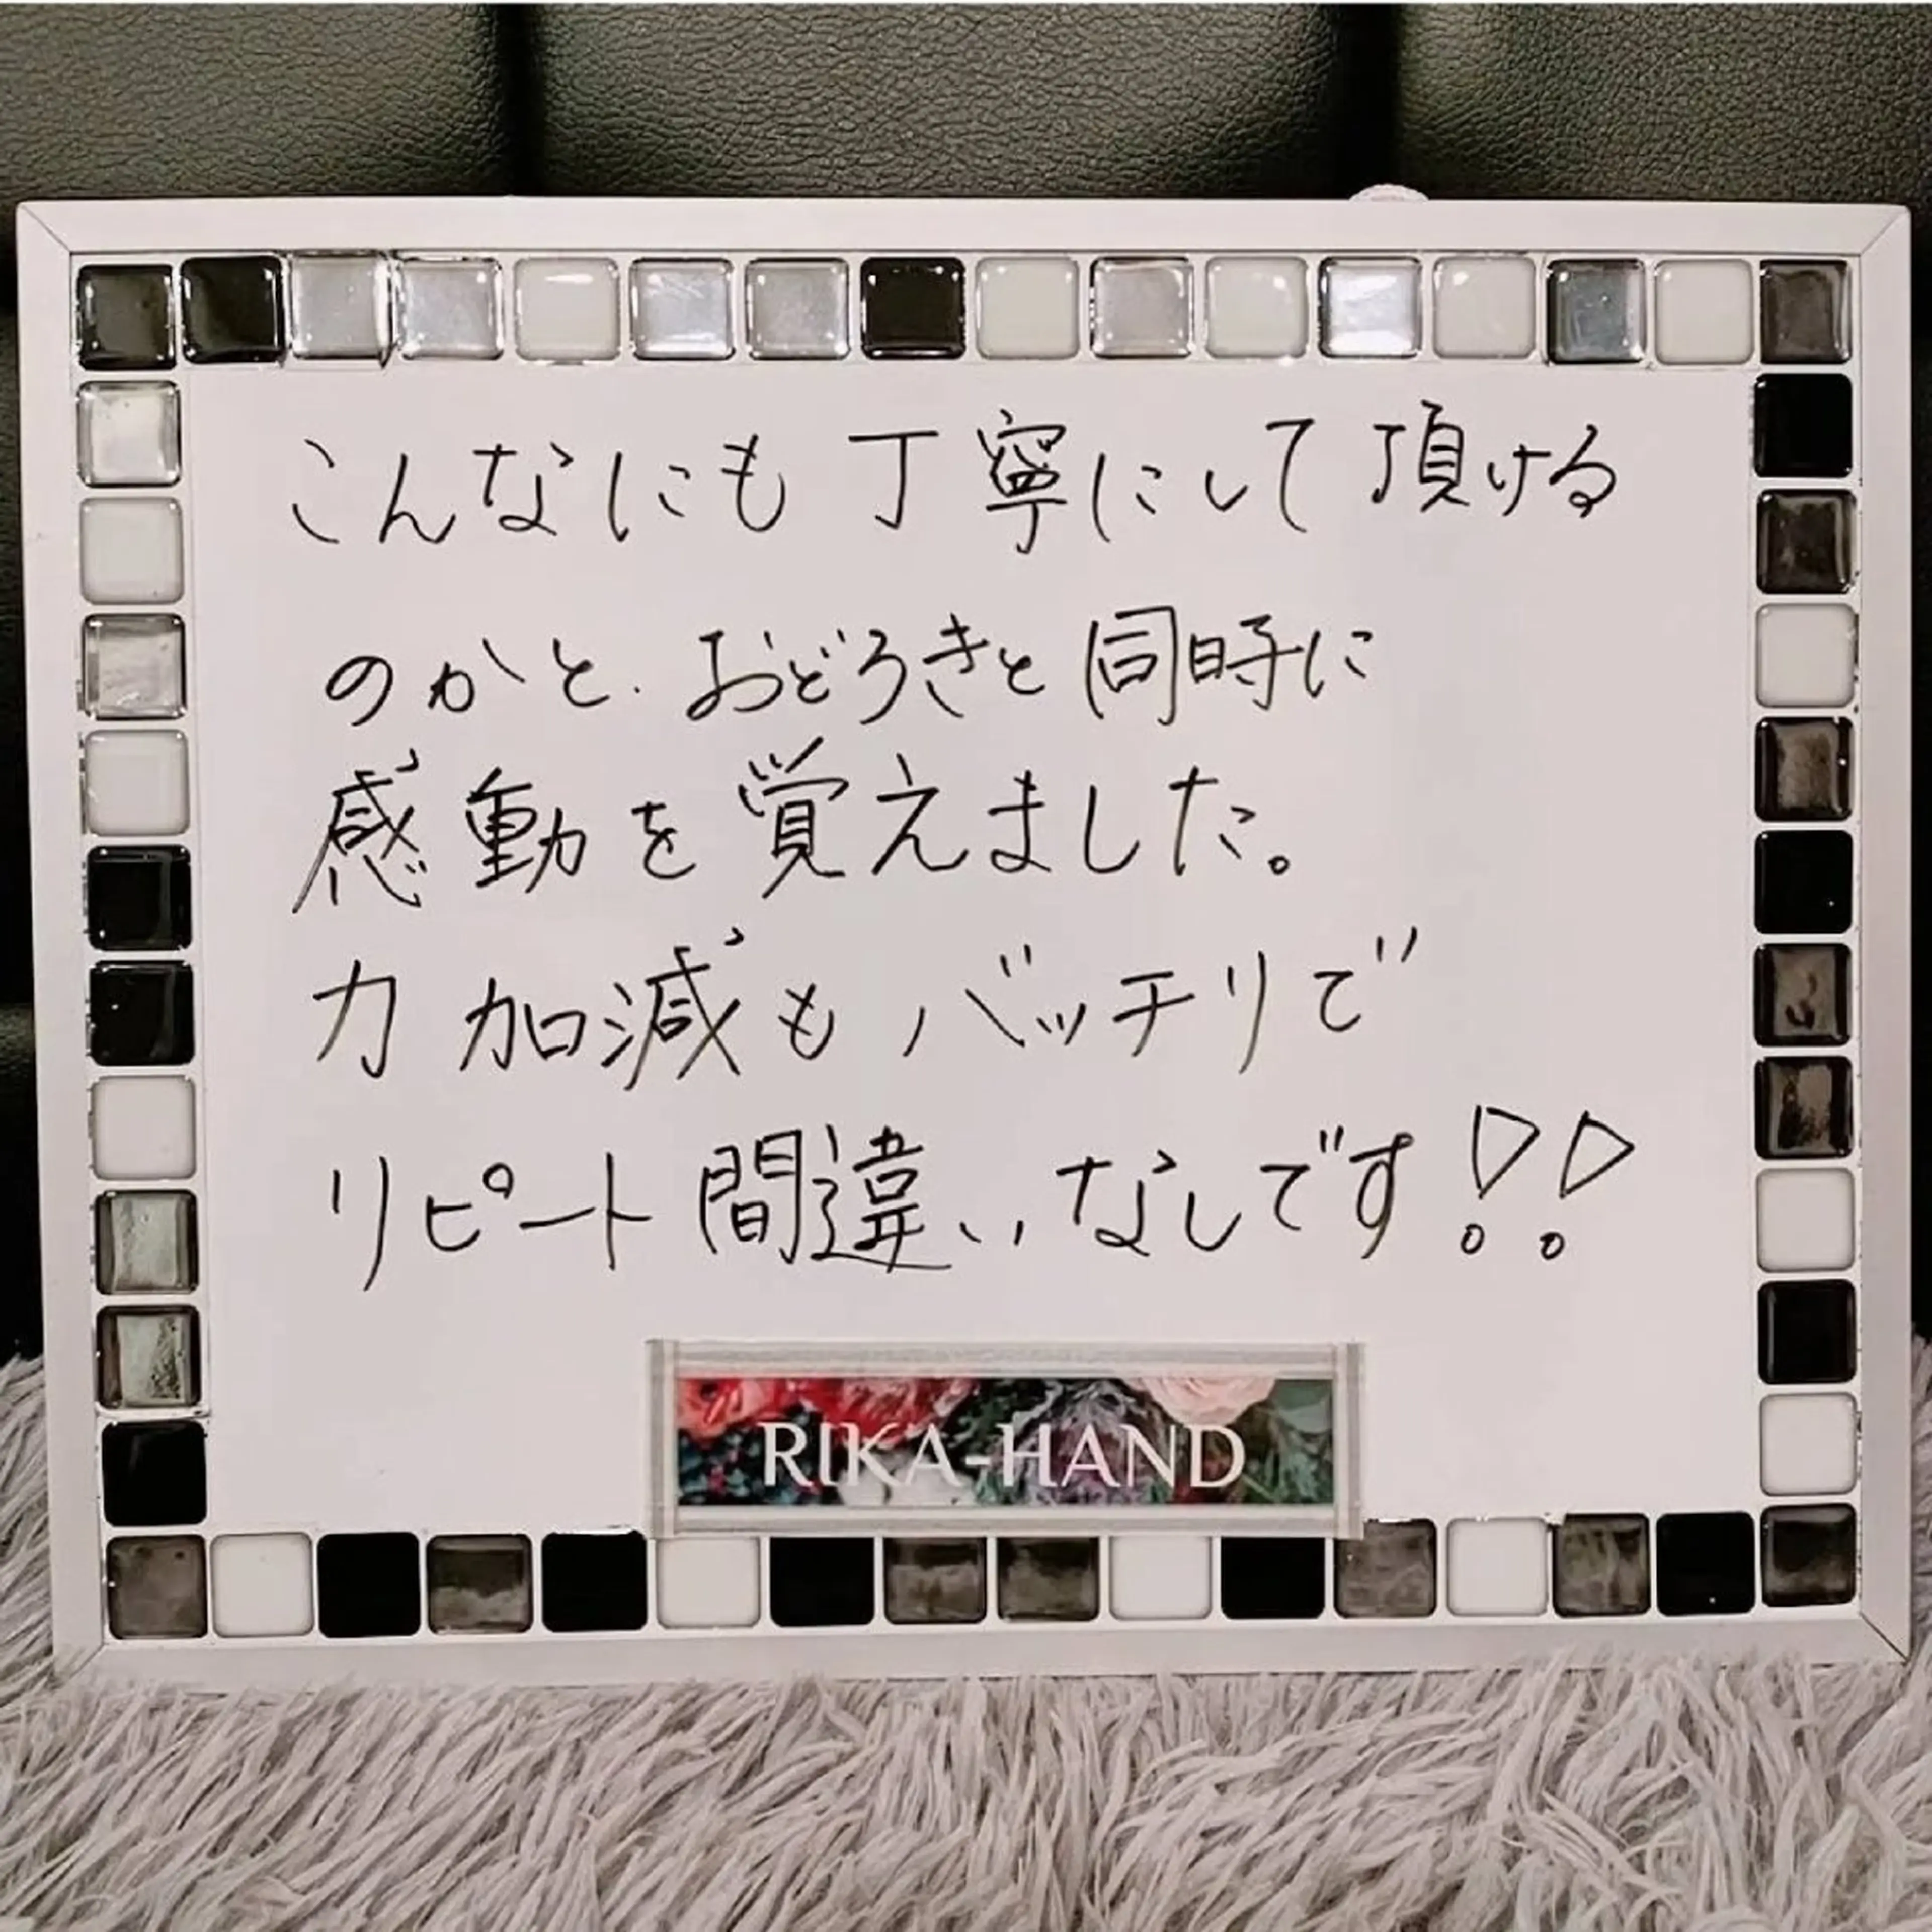 こんなにも丁寧にして頂ける
のかと、おどろきと同時に
感動を覚えました。
力加減もバッチリで
リピート間違いなしです!!
RIKA-HAND